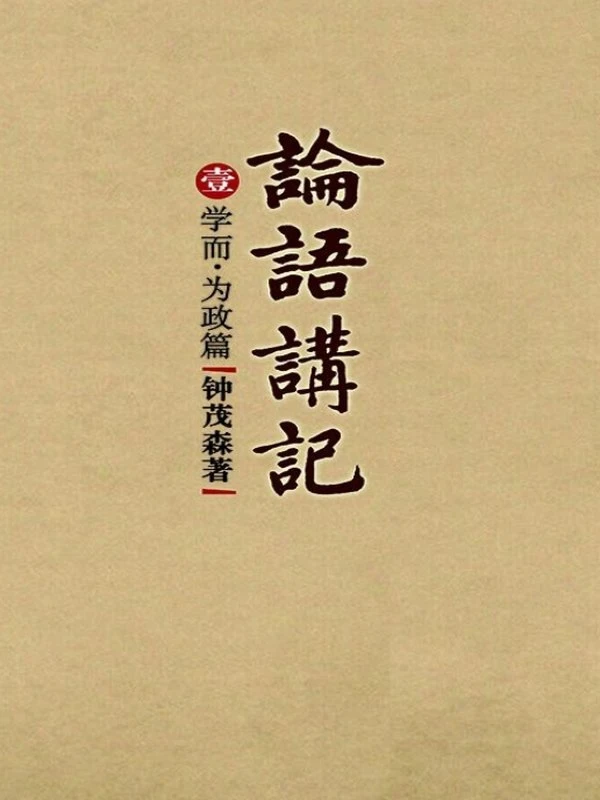 論語講記
壹
学而·为政篇
钟茂森著